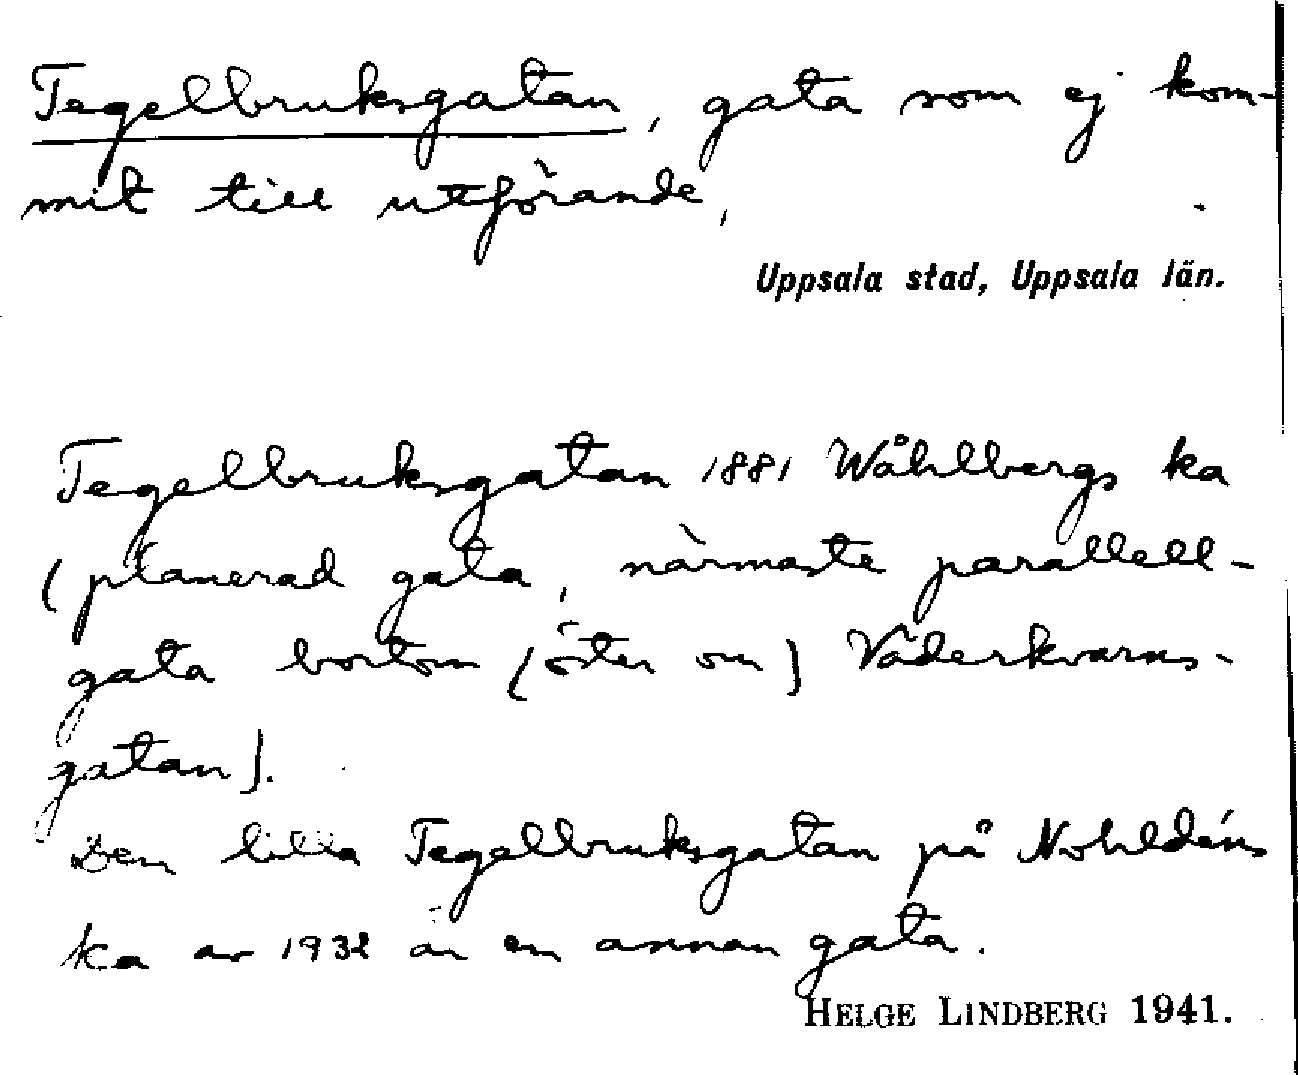 Tegelbruksgatan, gata som ej kom-
mit till utförande,
Uppsala stad, Uppsala län.
Tegelbruksgatan 1881 Wåhlbergs ka
(planerad gata, närmaste parallell-
gata bortom (öster om) Väderkvarns-
gatan).
Den lilla Tegelbruksgatan på Nohldéns
ka av 1932 är en annan gata.
HELGE LINDBERG 1941.